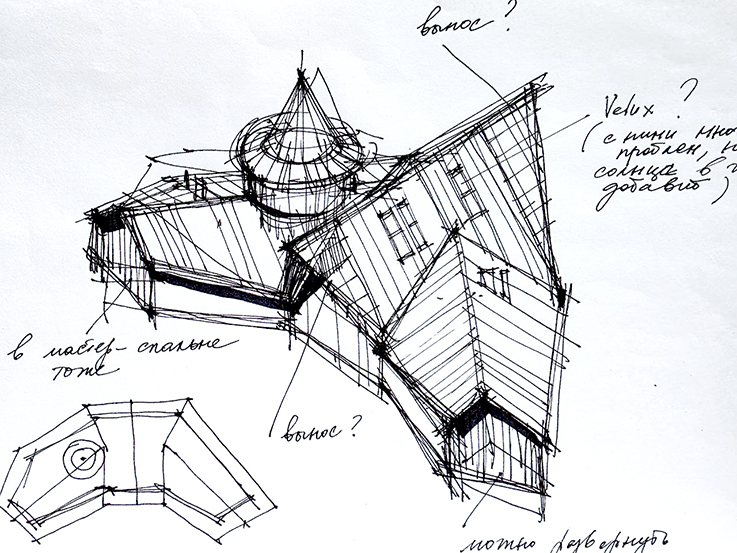 вынос?
Velux ?
(с ними мно
проблем, н
солнца в
добавит)
в мастер-спальне
тоже
вынос?
можно развернуть